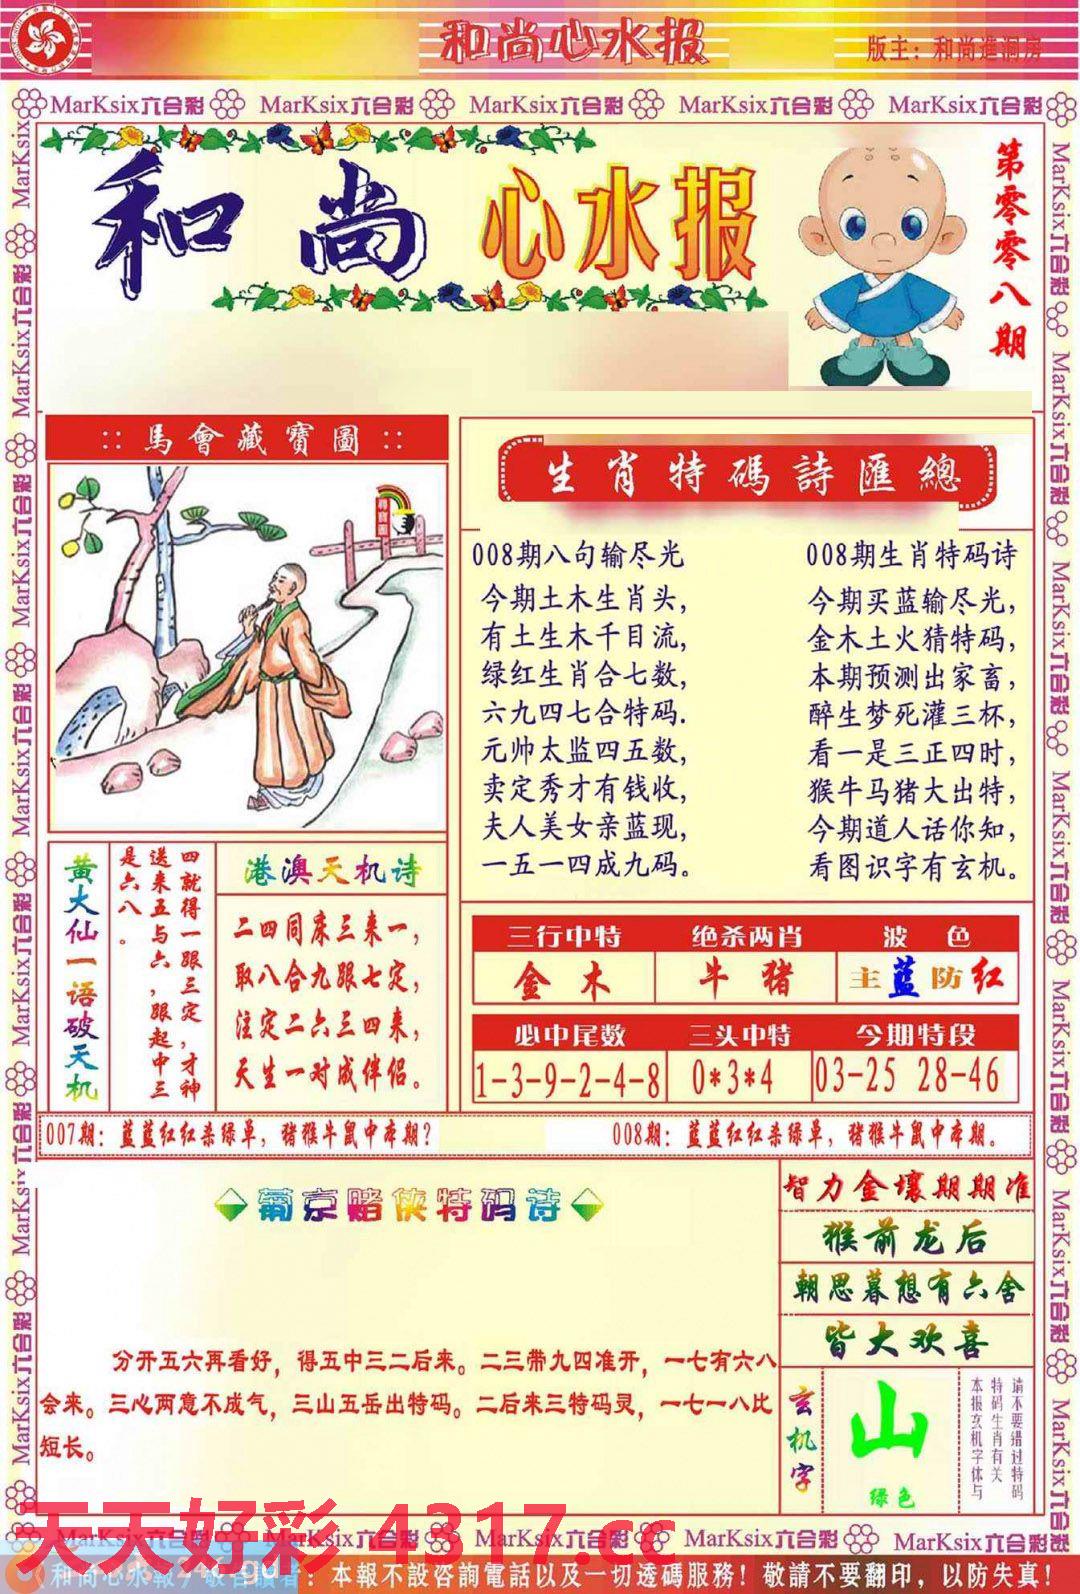 和尚心水报
版主：和尚進洞房
MarKsix六合彩 MarKsix六合彩 MarKsix六合彩 MarKsix六合彩 MarKsix六合彩
和尚心水报
第零零八期
::馬會藏寶圖::
生肖特碼詩匯總
008期八句输尽光
今期土木生肖头，
有土生木千目流，
绿红生肖合七数，
六九四七合特码.
元帅太监四五数，
卖定秀才有钱收，
夫人美女亲蓝现，
一五一四成九码。
008期生肖特码诗
今期买蓝输尽光，
金木土火猜特码，
本期预测出家畜，
醉生梦死灌三杯，
看一是三正四时，
猴牛马猪大出特，
今期道人话你知，
看图识字有玄机。
黄大仙一语破天机
四就得一跟三定，才神
送来五与六，跟起中三
是六八。
港澳天机诗
二四同床三来一，
取八合九跟七定，
注定二六三四来，
天生一对成伴侣。
三行中特 绝杀两肖 波色
金木 牛猪 主蓝防红
必中尾数 三头中特 今期特段
1-3-9-2-4-8 0*3*4 03-25 28-46
007期：蓝蓝红红杀绿单，猪猴牛鼠中本期？
008期：蓝蓝红红杀绿单，猪猴牛鼠中本期。
葡京赌侠特码诗
分开五六再看好，得五中三二后来。二三带九四准开，一七有六八
会来。三心两意不成气，三山五岳出特码。二后来三特码灵，一七一八比
短长。
智力金壤期期准
猴前龙后
朝思暮想有六舍
皆大欢喜
玄机字
山
绿色
请不要错过特码
特码生肖有关
本报玄机字体与
天天好彩 4317.cc
MarKsix六合彩 MarKsix六合彩 MarKsix六合彩 MarKsix六合彩 MarKsix六合彩
和尚心水報 敬告讀者：本報不設咨詢電話以及一切透碼服務！敬請不要翻印，以防失真！